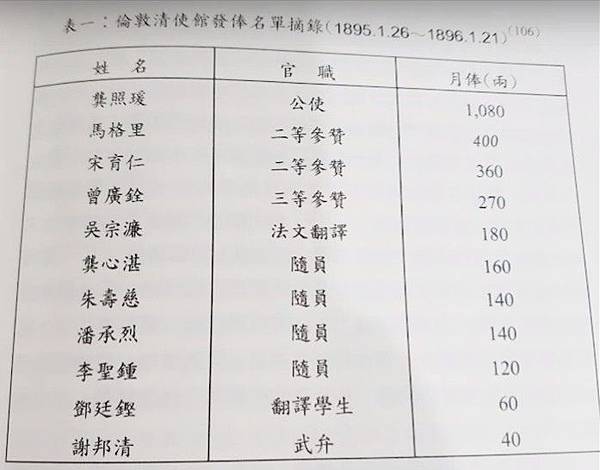 表一：倫敦清使館發俸名單摘錄(1895.1.26～1896.1.21)(106)
姓 名 官 職 月俸(兩)
龔照瑗 公使 1,080
馬格里 二等參贊 400
宋育仁 二等參贊 360
曾廣銓 三等參贊 270
吳宗濂 法文翻譯 180
龔心湛 隨員 160
朱壽慈 隨員 140
潘承烈 隨員 140
李聖鍾 隨員 120
鄧廷鏗 翻譯學生 60
謝邦清 武弁 40